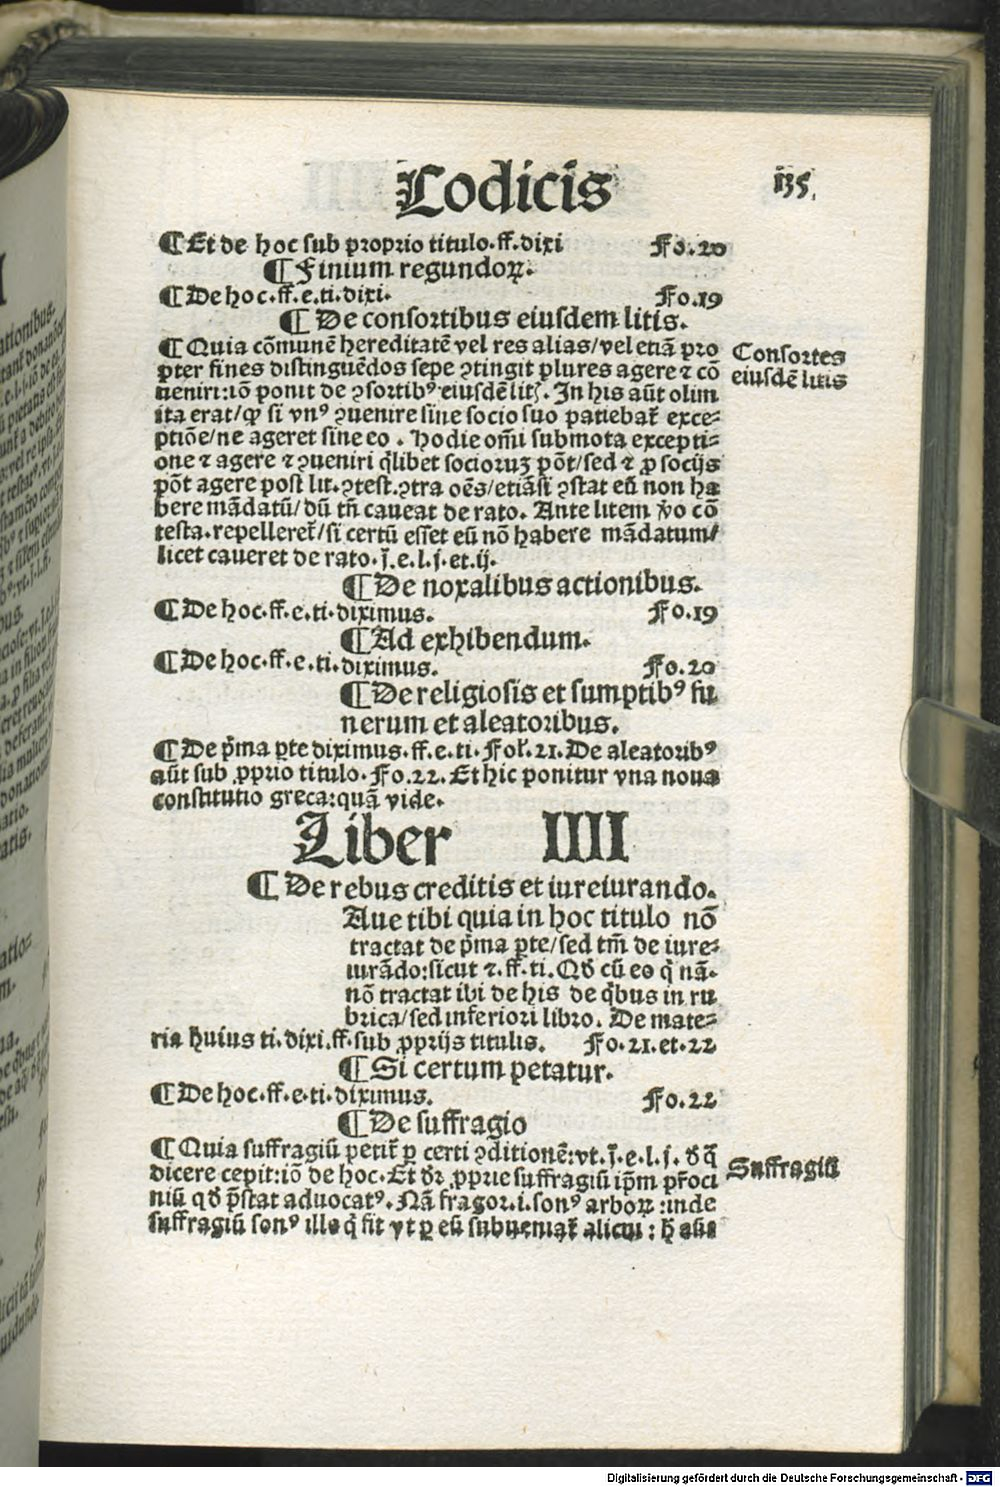 Codicis 135.
¶ Et de hoc sub proprio titulo.ff.dixi Fo.20
¶ Finium regundoꝝ.
¶ De hoc.ff.e.ti.dixi. Fo.19
¶ De consortibus eiusdem litis.
¶ Quia cōmunē hereditatē vel res alias/vel etiā pro
pter fines distinguēdos sepe ꝯtingit plures agere ⁊ cō
ueniri:iō ponit de ꝯsortibꝰ eiusdē litꝭ. In his aūt olim
ita erat/ꝙ si vnꝰ ꝯuenire sine socio suo patiebat̄ exce⸗
ptiōe/ne ageret sine eo. Hodie om̄i submota excepti⸗
one ⁊ agere ⁊ ꝯueniri q̄libet socioruꝫ pōt/sed ⁊ ꝓ socijs
pōt agere post lit.ꝯtest.ꝯtra oēs/etiāsi ꝯstat eū non ha
bere mādatū/dū tn̄ caueat de rato. Ante litem v̄o cō
testa.repelleret̄/si certū esset eū nō habere mādatum/
licet caueret de rato.j̄.e.l.j.et.ij.
Consortes
eiusdē litis
¶ De noxalibus actionibus.
¶ De hoc.ff.e.ti.diximus. Fo.19
¶ Ad exhibendum.
¶ De hoc.ff.e.ti.diximus. Fo.20
¶ De religiosis et sumptibꝰ fu
nerum et aleatoribus.
¶ De p̄ma ꝑte diximus.ff.e.ti.Fol̄.21.De aleatoribꝰ
aūt sub ꝓprio titulo.Fo.22.Et hic ponitur vna noua
constitutio greca:quā vide.
Liber IIII
¶ De rebus creditis et iureiurando.
Aue tibi quia in hoc titulo nō
tractat de p̄ma ꝑte/sed tm̄ de iure⸗
iurādo:sicut ⁊.ff.ti.Qd̄ cū eo q̄ nā.
nō tractat ibi de his de q̄bus in ru
brica/sed inferiori libro. De mate⸗
ria huius ti.dixi.ff.sub ꝓprijs titulis. Fo.21.et.22
¶ Si certum petatur.
¶ De hoc.ff.e.ti.diximus. Fo.22
¶ De suffragio
¶ Quia suffragiū petit̄ ꝑ certi ꝯditionē:vt.j̄.e.l.j. d̄ q̄
dicere cepit:iō de hoc. Et dr̄ ꝓprie suffragiū ip̄m pr̄oci
niū qd̄ p̄stat aduocatꝰ. Nā fragor.i.sonꝰ arboꝝ:inde
suffragiū sonꝰ ille q̄ fit vt ꝑ eū subueniat̄ alicui:
Suffragiū
Digitalisierung gefördert durch die Deutsche Forschungsgemeinschaft - DFG